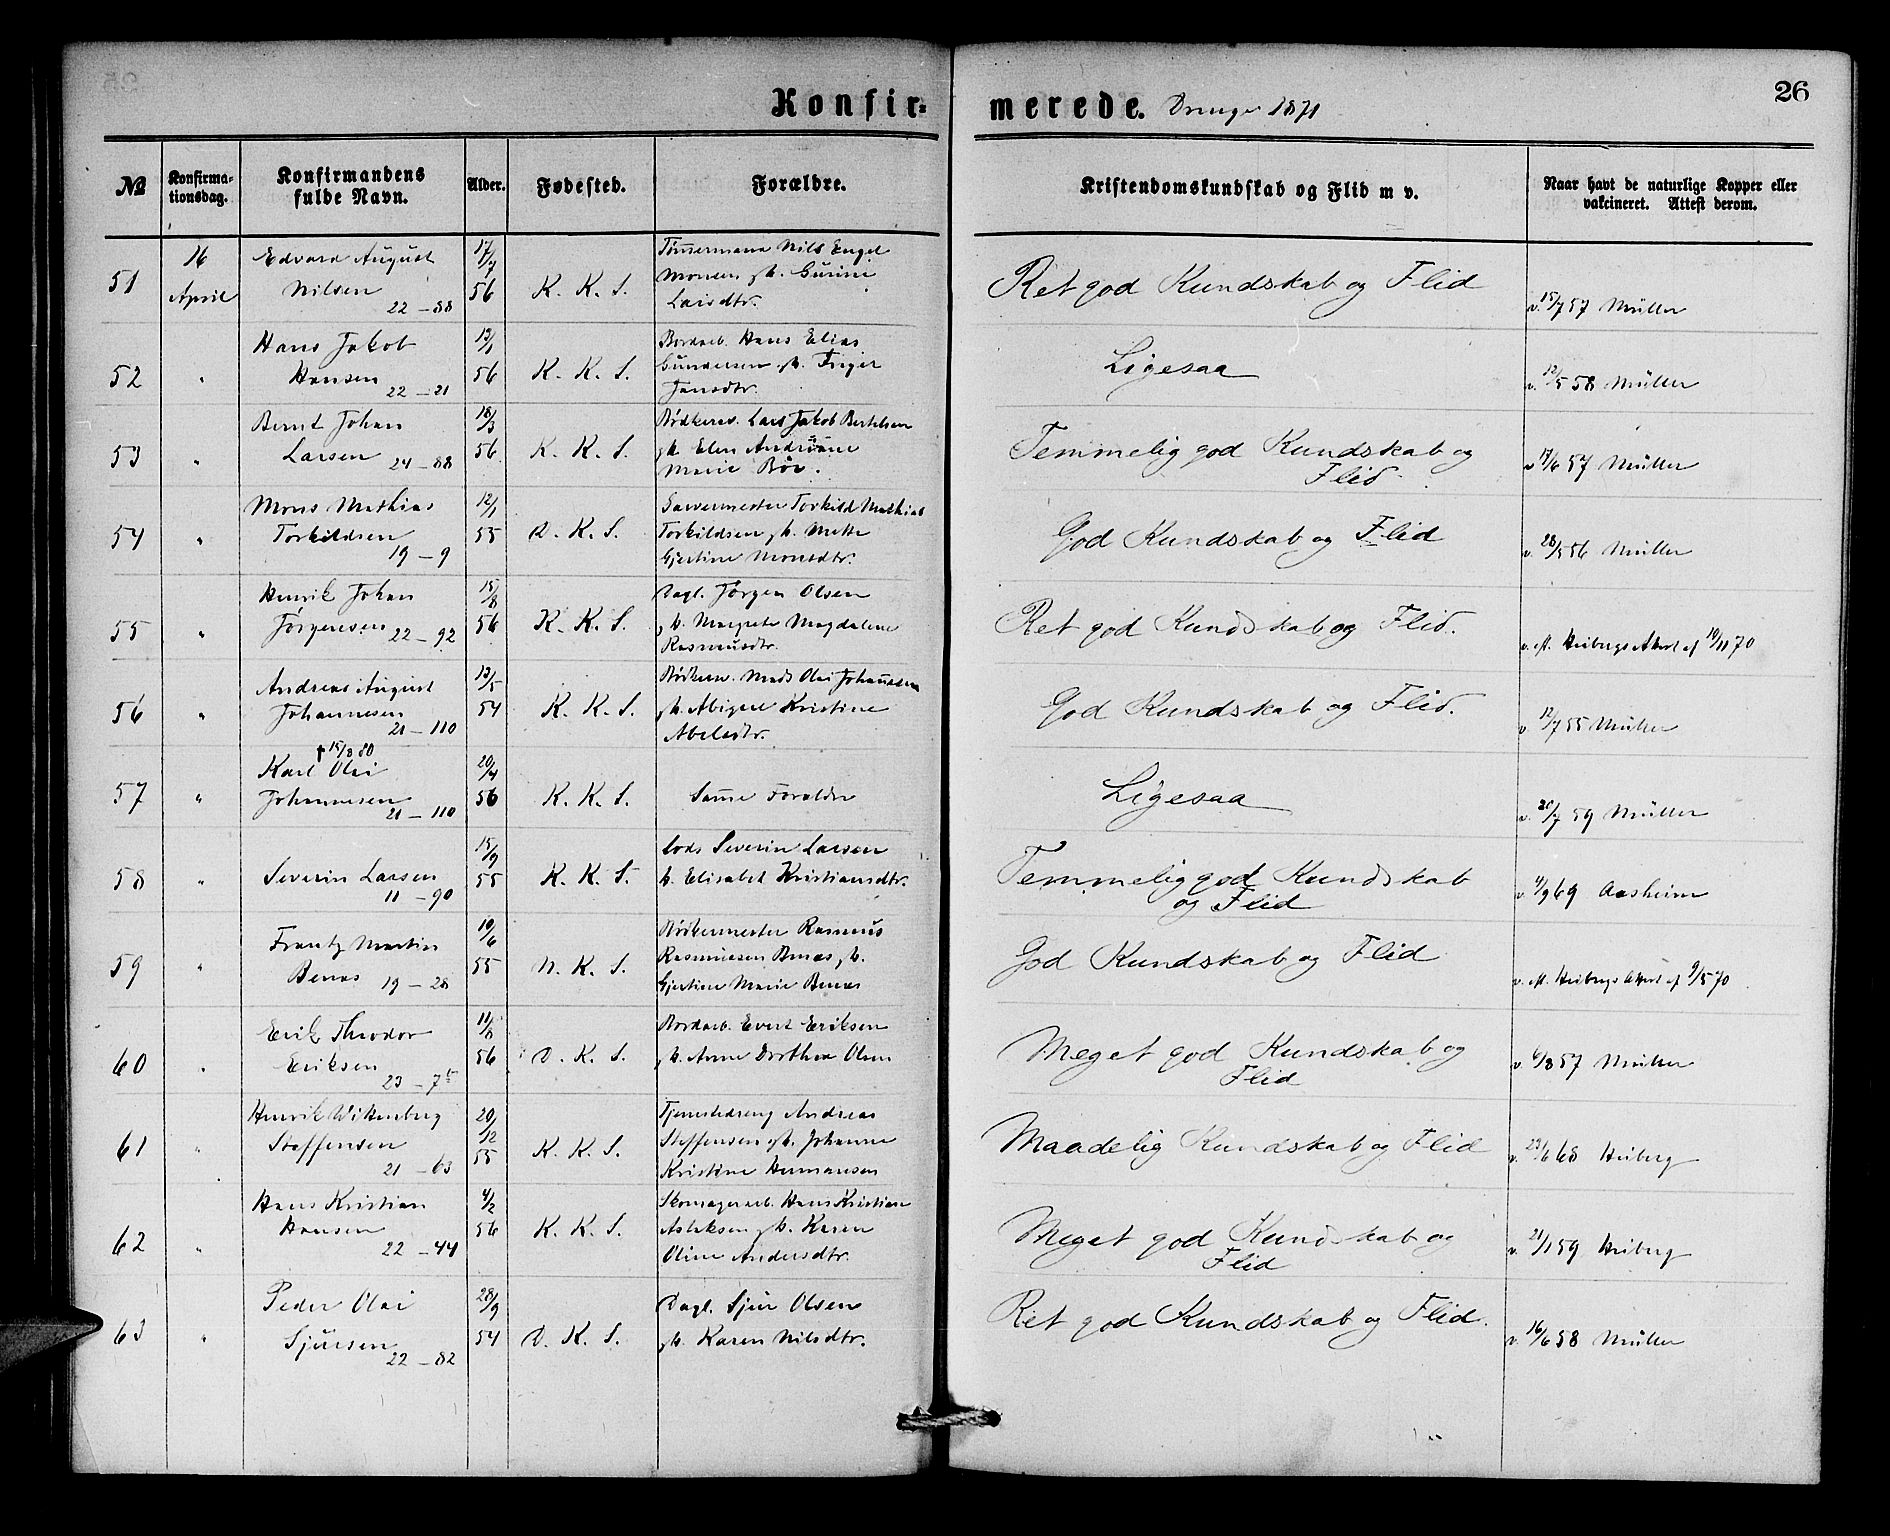 Konfir-
merede. Drenge 1871
26
№
Konfirma-
tionsdag.
Konfirmandens
fulde Navn.
Alder.
Fødested.
Forældre.
Kristendomskundskab og Flid m v.
Naar havt de naturlige Kopper eller
vakcineret. Attest derom.
51
16
April
Edvard August
Nilsen
22 – 88
17/7
56
K. K. S.
Tømmermand Nils Engel
Monsen, h. Gurine
Larsdtr.
Ret god Kundskab og Flid
v. 15/7 57 Müller
52
"
Hans Jakob
Hansen
22 – 21
13/1
56
K. K. S.
Bordarb. Hans Elias
Gundersen, h. Inger
Jansdtr.
Ligesaa
v. 12/5 58 Müller
53
"
Bernt Johan
Larsen 24 – 88
18/3
56
K. K. S.
Bødkersv. Lars Jakob Bertelsen
h. Elen Andriane
Marie Bøe.
Temmelig god Kundskab og
Flid
v 17/6 57 Müller
54
"
Mons Mathias
Torkildsen
19 – 9
12/1
55
D. K. S.
Garvermester Torkild Mathias
Torkildsen, h. Mette
Gjertine Monsdtr.
God Kundskab og Flid
v. 28/5 56 Müller
55
"
Henrik Johan
Jørgensen 22 – 92
15/8
56
K. K. S.
Dagl. Jørgen Olsen
h. Margrete Magdalene
Rasmusdtr.
Ret god Kundskab og Flid.
v. eft. Heibergs Attest af 10/11 70
56
"
Andreas August
Johannesen
21 – 110
13/5
54
K. K. S.
Bødkersv. Mads Olai Johannesen
h. Abigael Kristine
Abelsdtr.
God Kundskab og Flid.
v. 12/7 55 Müller
57
"
† 15/8 80
Karl Olai
Johannesen
21 – 110
20/4
56
K. K. S.
Samme Forældre
Ligesaa
v. 20/7 59 Müller
58
"
Severin Larsen
11 – 90
15/9
55
K. K. S.
Lods Severin Larsen
h. Elisabet Kristiansdtr.
Temmelig god Kundskab
og Flid
v 4/9 69 Aasheim
59
"
Frantz Martin
19 – 28
10/6
55
D. K. S.
Bødkermester Rasmus
Rasmussen h.
Gjertine Marie
God Kundskab og Flid
v. eft. Heibergs Attest af 9/5 70
60
"
Erik Theodor
Eriksen
23 – 7
11/8
56
D. K. S.
Bordarb. Evert Eriksen
h. Anne Dorthea Olsen
Meget god Kundskab og
Flid
v. 6/8 57 Müller
61
"
Henrik Wittenberg
Steffensen
21 – 63
20/12
55
K. K. S.
Tjenestedreng Andreas
Steffensen, h. Johanne
Kristine Hermansen
Maadelig Kundskab og Flid
v. 23/6 68 Heiberg
62
"
Hans Kristian
Hansen
22 – 44
4/2
56
K. K. S.
Skomagerarb. Hans Kristian
Aslaksen, h. Karen
Oline Andersdtr.
Meget god Kundskab og
Flid
v. 21/1 59 Heiberg
63
"
Peder Olai
Sjursen
22 – 82
28/9
54
D. K. S.
Dagl. Sjur Olsen
h. Karen Nilsdtr.
Ret god Kundskab og Flid.
v. 16/6 58 Müller